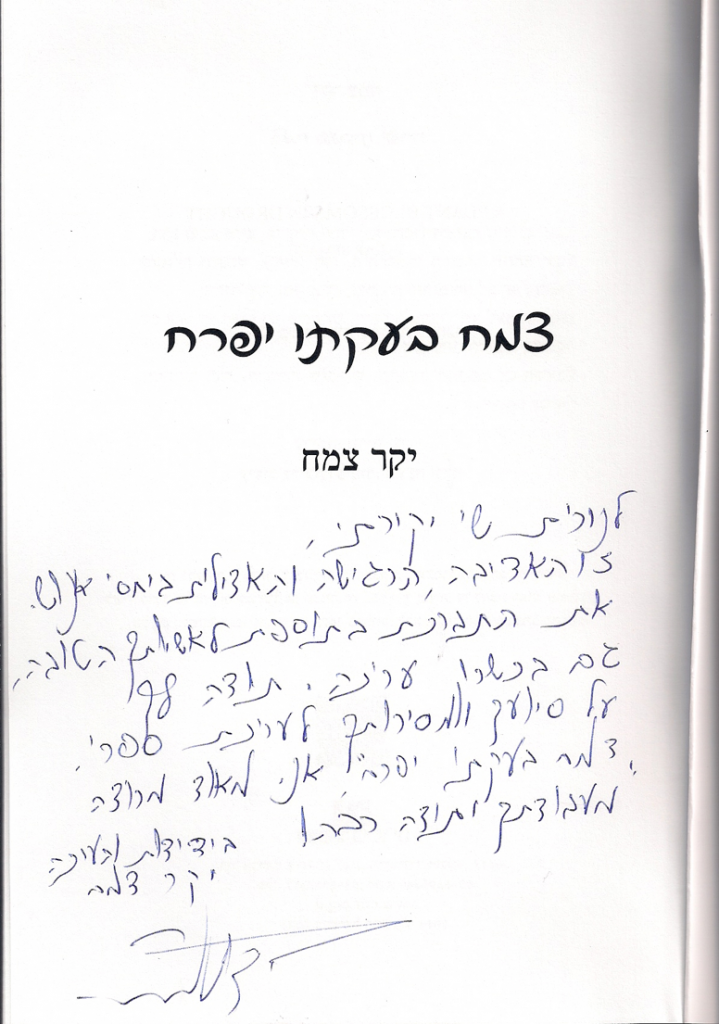 צמח בעקתו יפרח
יקר צמח
לנורית שי יקירתי,
זו האדיבה, הרגישה והאצילית ביחסי אנוש.
את התברכת בתוספת לאשיותך הטובה,
גם בכשרון עריכה. תודה לך
על סיועך ומסירותך לעריכת ספרי,
"צמח בעקתו יפרח", אני מאוד מרוצה
מעבודתך ותודה רבה!
בידידות והערכה
יקר צמח